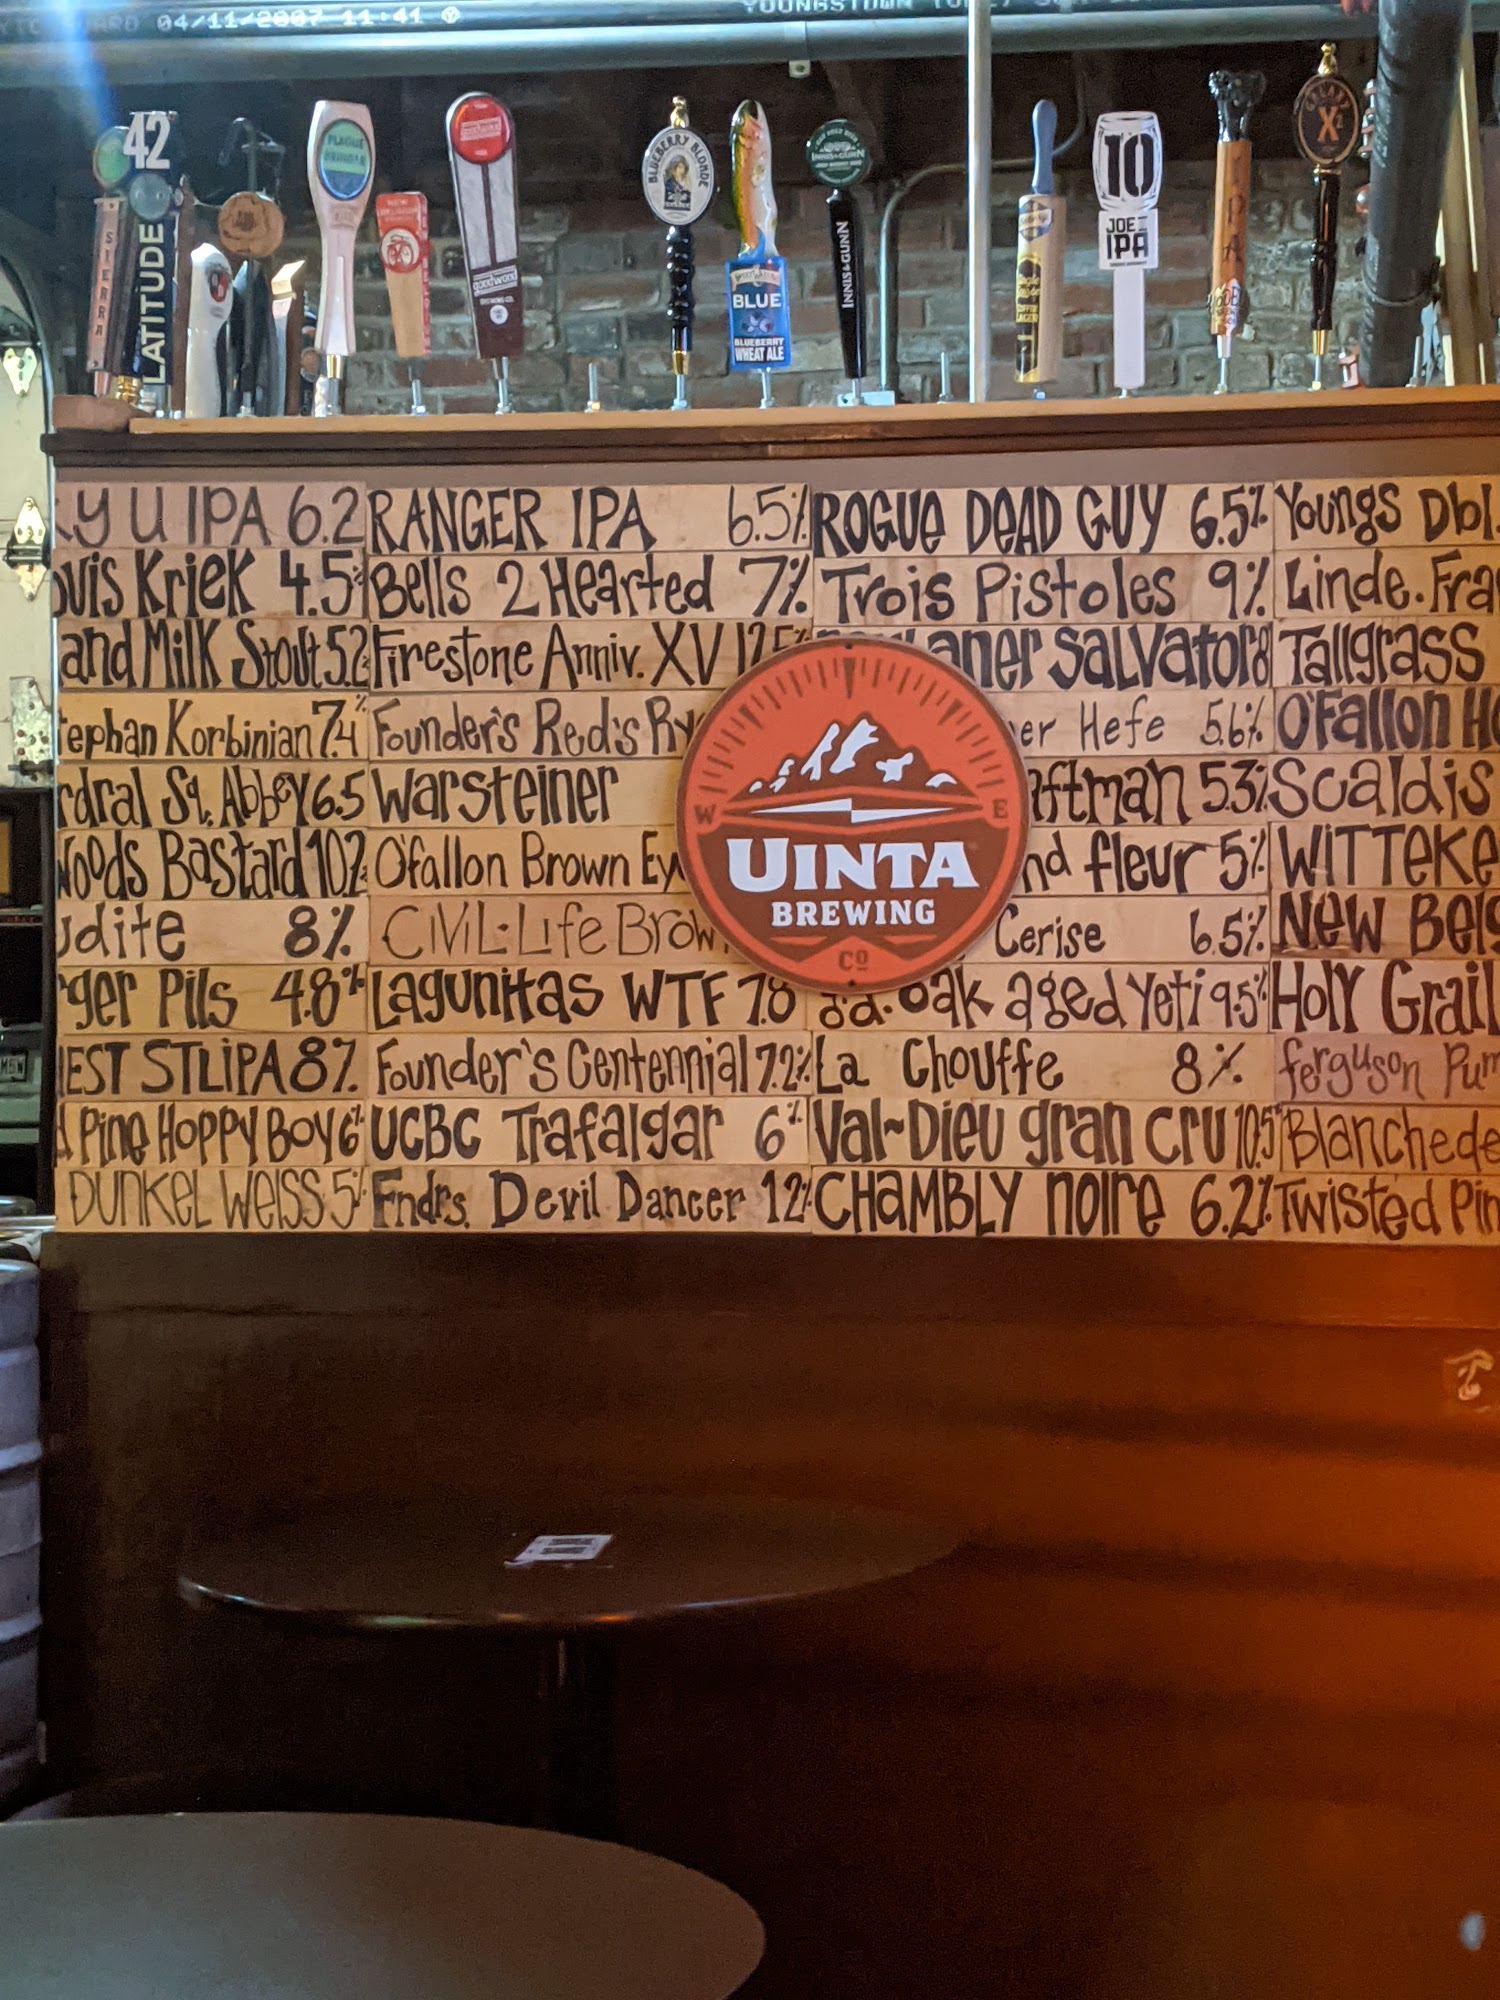 04/11/2007 11:41
YOUNGSTOWN
42
LATITUDE
SIERRA
PLAGUE
BRINGER
NEW
goodwood
goodwood
BREWING CO.
BLUEBERRY BLONDE
SWEETWATER
BLUE
BLUEBERRY
WHEAT ALE
INNIS & GUNN
INNIS & GUNN
LAGER
10
JOE
IPA
IPA
GALAXY
X2
Y U IPA 6.2
RANGER IPA 6.5%
ROGUE DEAD GUY 6.5%
Youngs Dbl.
ouis Kriek 4.5%
Bells 2 Hearted 7%
Trois Pistoles 9%
Linde. Fra
and Milk Stout 5.2%
Firestone Anniv. XV 12.5%
aner Salvator 8
Tallgrass
tephan Korbinian 7.4%
Founder's Red's Ry
er Hefe 5.6%
O'Fallon H
dral Sq. Abbey 6.5
Warsteiner
ftman 5.3%
Scaldis
Woods Bastard 10.2
O'fallon Brown Ey
nd fleur 5%
WITTEKE
udite 8%
CIVIL-Life Brow
Cerise 6.5%
New Belg
ger Pils 4.8%
Lagunitas WTF 7.8
oak aged Yeti 9.5%
Holy Grail
EST STLIPA 8%
Founder's Centennial 7.2%
La Chouffe 8%
ferguson Pum
d Pine Hoppy Boy 6%
UCBC Trafalgar 6%
Val~Dieu gran cru 10.5%
Blanchede
DUNKEL WEISS 5%
Fndrs. Devil Dancer 12%
CHAMBLY noire 6.2%
Twisted Pin
W E
UINTA
BREWING
CO